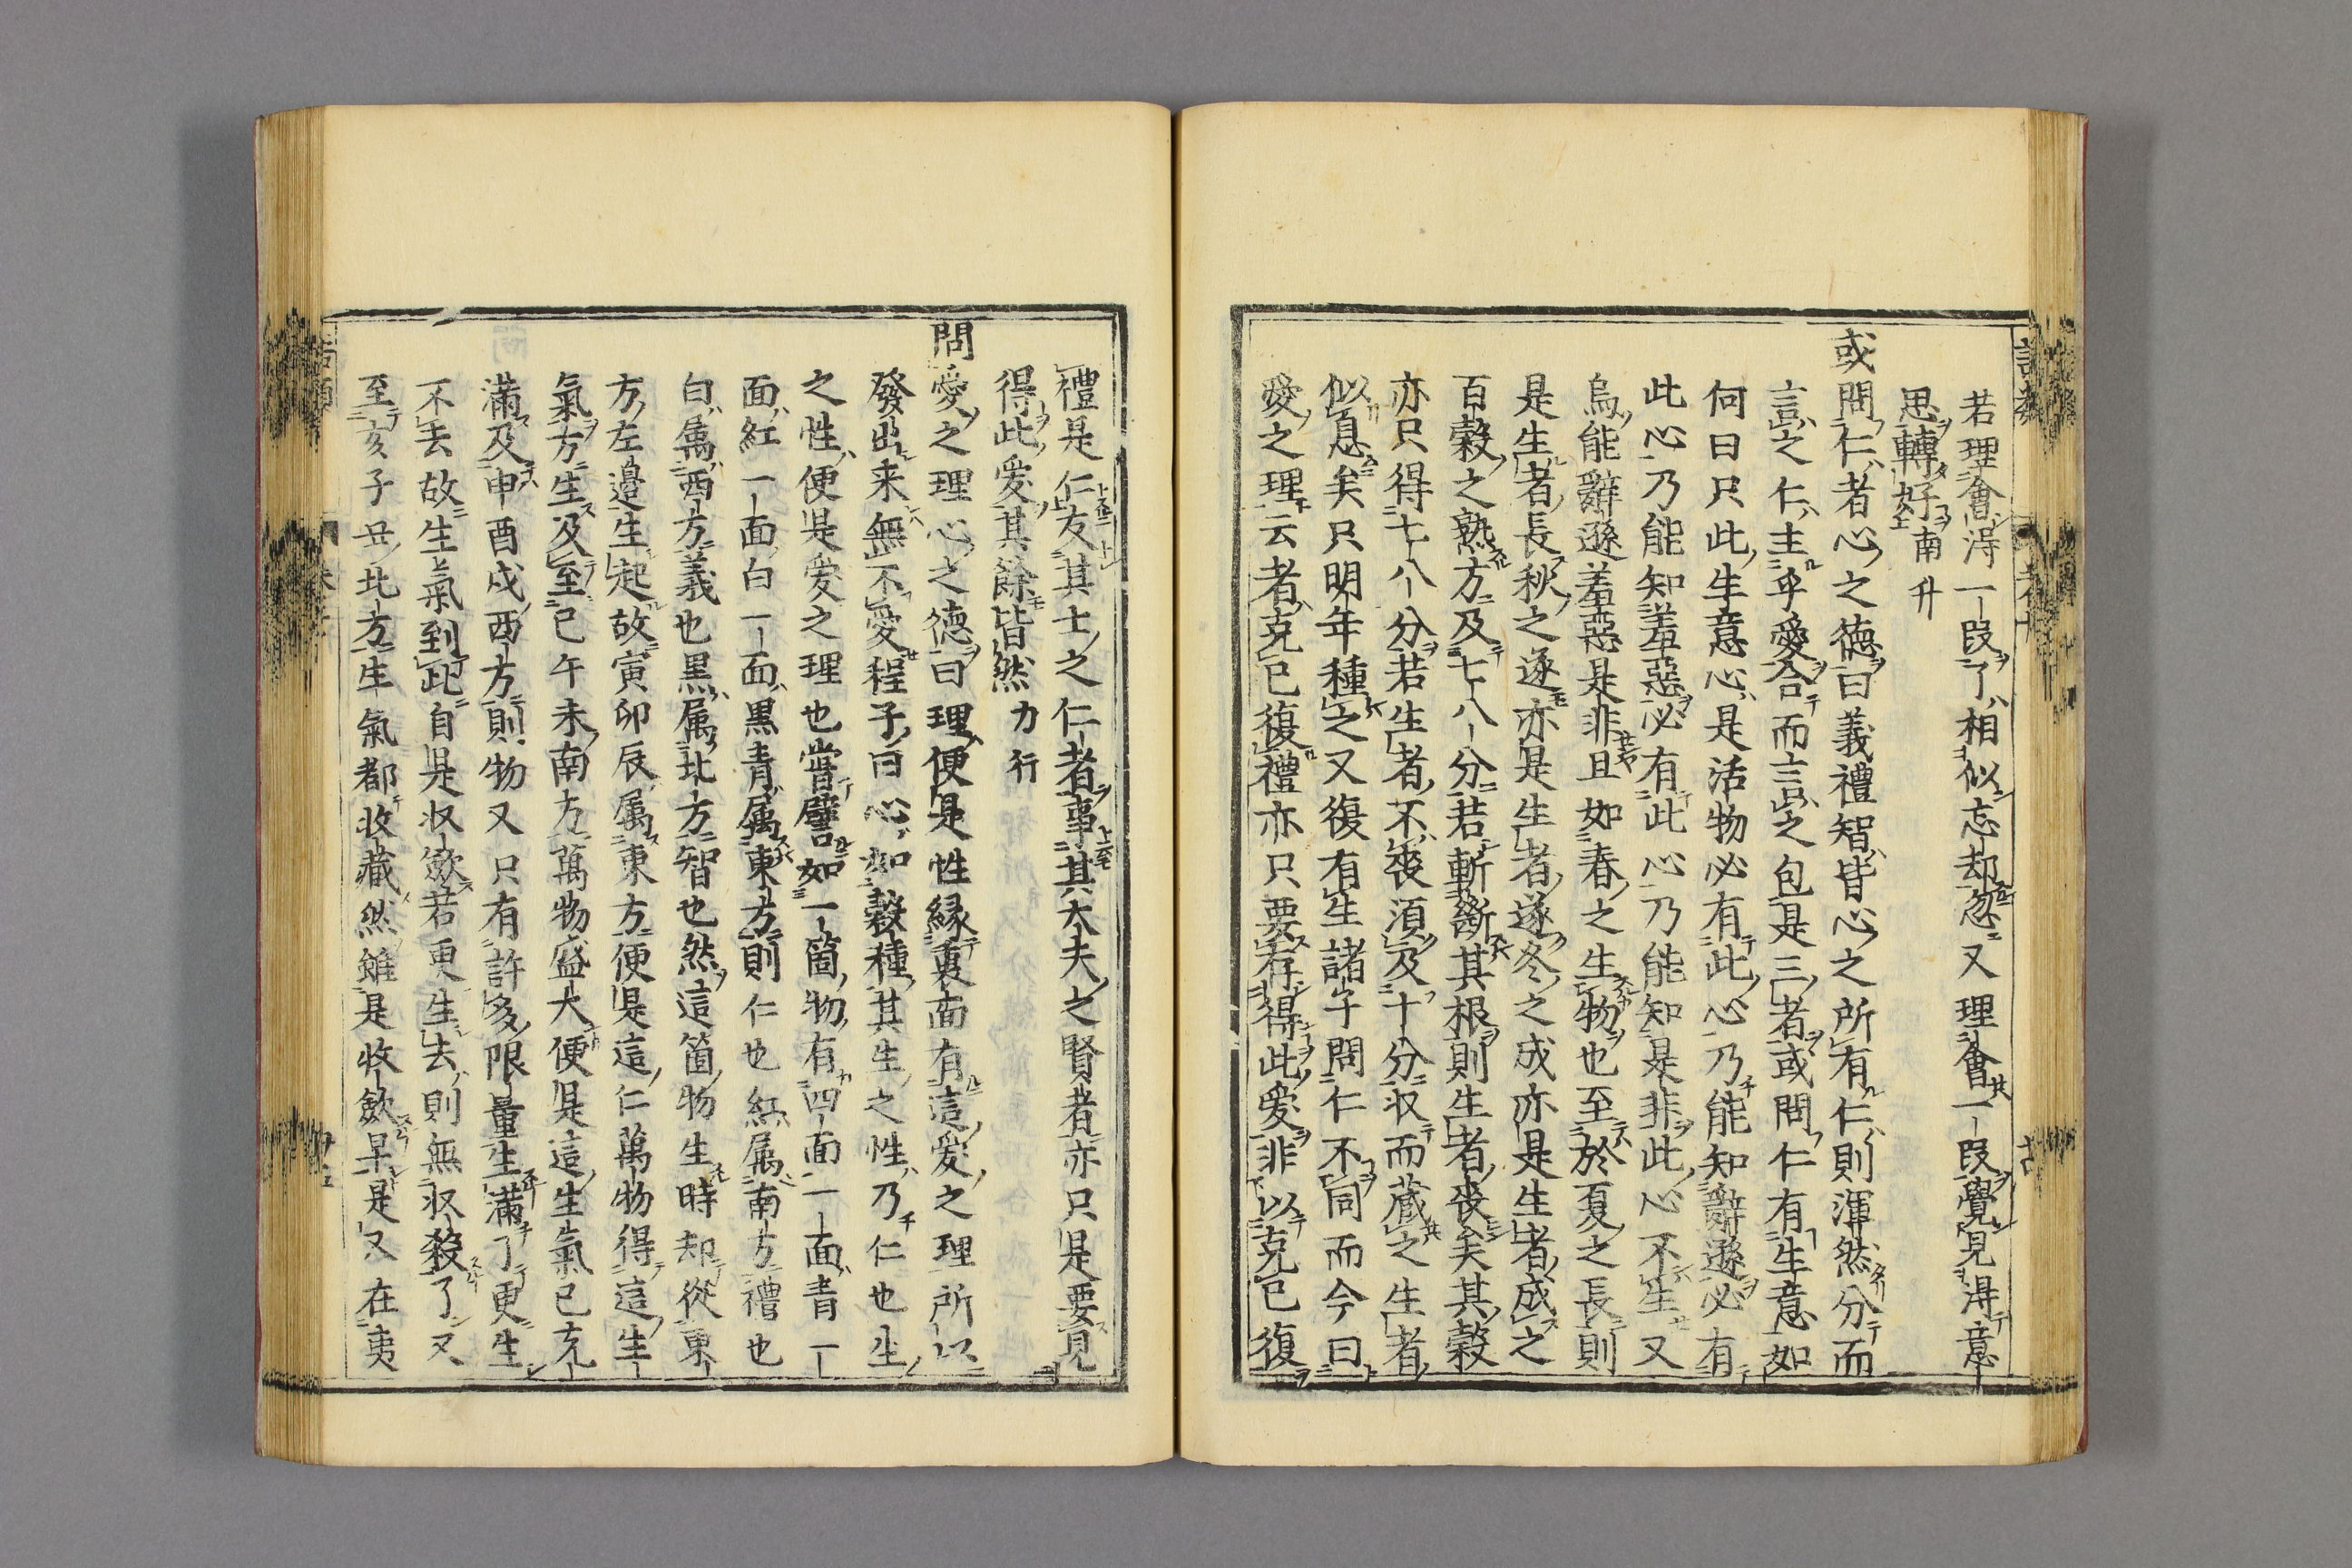 若理會得一段了相似忘却忽又理會一段覺見得意
思轉好南升
或問仁者心之德曰義禮智皆心之所有仁則渾然分而
言之仁主乎愛合而言之包是三者或問仁有生意如
何曰只此生意心是活物必有此心乃能知辭遜必有
此心乃能知羞惡必有此心乃能知是非此心不生又
烏能辭遜羞惡是非且如春之生物也至於夏之長則
是生者長秋之遂亦是生者遂冬之成亦是生者成之
百穀之熟方及七八分若斬斷其根則生者喪矣其穀
亦只得七八分若生者不喪須及十分収而藏之生者
似息矣只明年種之又復有生諸子問仁不同而今曰
愛之理云者克已復禮亦只要存得此愛非以克已復
禮是仁友其士之仁者事其大夫之賢者亦只是要見
得此愛其餘皆然力行
問愛之理心之德曰理便是性縁裏面有這愛之理所以
發出来無不愛程子曰心如穀種其生之性乃仁也生
之性便是愛之理也嘗譬如一箇物有四面一面青一
面紅一面白一面黒青属東方則仁也紅属南方禮也
白属西方義也黒属北方智也然這箇物生時却從東
方左邉生起故寅卯辰属東方便是這仁萬物得這生
氣方生及至巳午未南方萬物盛大便是這生氣已充
滿及申酉戌西方則物又只有許多限量生滿了更生
不去故生氣到此自是収斂若更生去則無収殺了又
至亥子丑北方生氣都收藏然雖是收斂早是又在夷